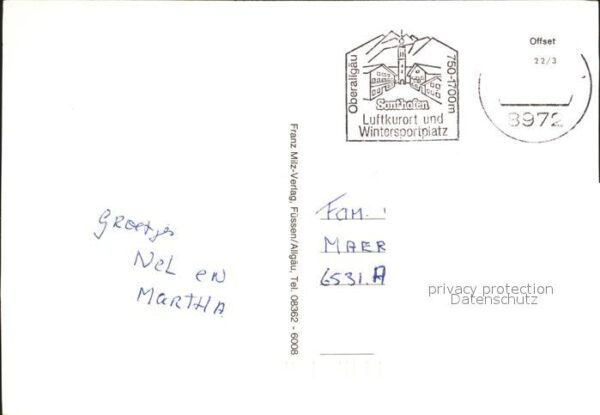 Oberallgäu
750-1700m
Sonthofen
Luftkurort und
Wintersportplatz
Offset
22/3
8972
Franz Milz-Verlag, Füssen/Allgäu, Tel. 08362 - 6008
Groetjes
Nel en
Martha
Fam.
MAER
6531.A
privacy protection
Datenschutz